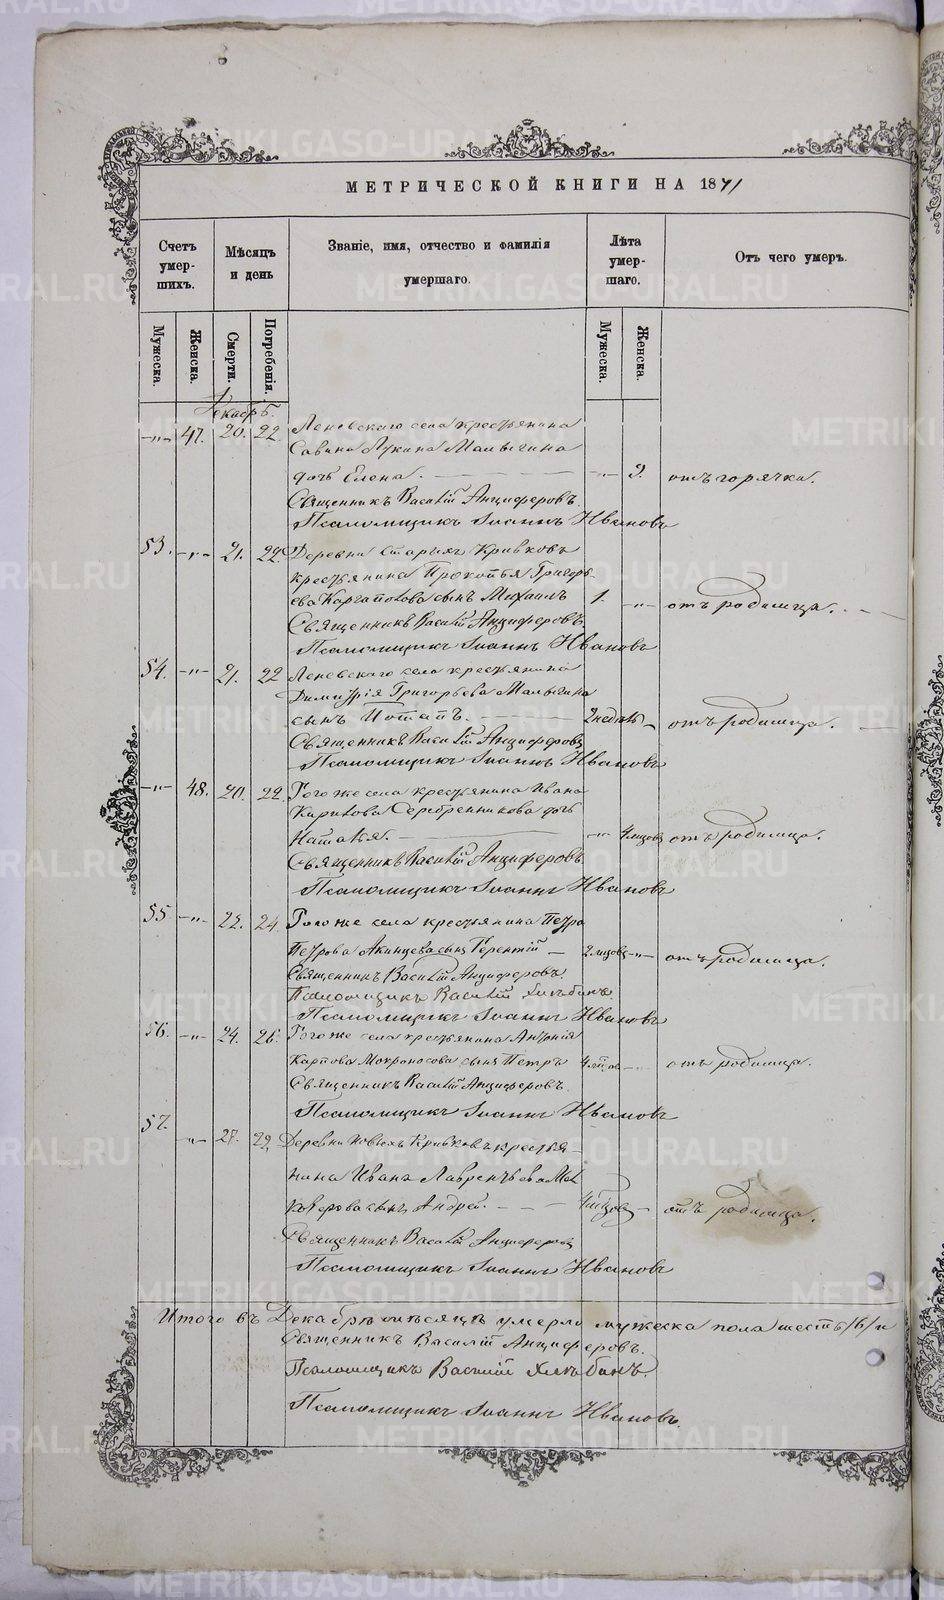 МЕТРИЧЕСКОЙ КНИГИ НА 1871
Счетъ умер-шихъ.
Мѣсяцъ и день
Званіе, имя, отчество и фамилія умершаго.
Лѣта умер-шаго.
Отъ чего умеръ.
Мужеска.
Женска.
Смерти.
Погребенія.
Мужеска.
Женска.
Декабрь.
-"- 47. 20. 22. Леневскаго села крестьянина
Савина Лукина Малыгина
дочь Елена. -"- 9. отъ горячки.
Священникъ Василій Анциферовъ.
Псаломщикъ Іоаннъ Ивановъ
53. -"- 21. 22. Деревни Старыхъ Кривковъ
крестьянина Прокопья Григорь-
ева сынъ Михаилъ 1. -"- отъ родимца.
Священникъ Василій Анциферовъ.
Псаломщикъ Іоаннъ Ивановъ
54. -"- 21. 22 Леневскаго села крестьянина
Димитрія Григорьева Малыгина
сынъ Потапъ. 2 недѣль отъ родимца.
Священникъ Василій Анциферовъ
Псаломщикъ Іоаннъ Ивановъ
-"- 48. 20. 22. Того же села крестьянина Ивана
Карпова Серебренникова дочь
Наталья. -"- отъ родимца.
Священникъ Василій Анциферовъ
Псаломщикъ Іоаннъ Ивановъ
55 -"- 22. 24. Того же села крестьянина Петра
Петрова сынъ Терентій -"- отъ родимца.
Священникъ Василій Анциферовъ.
Псаломщикъ Василій Хлѣбинъ
Псаломщикъ Іоаннъ Ивановъ
56. -"- 24. 26. Того же села крестьянина
Карпова Мокроносова сынъ Петръ отъ родимца.
Священникъ Василій Анциферовъ.
Псаломщикъ Іоаннъ Ивановъ
57. -"- 27. 29. Деревни Новыхъ Кривковъ крестья-
нина Ивана Лаврентьева
сынъ Андрей. отъ родимца.
Священникъ Василій Анциферовъ
Псаломщикъ Іоаннъ Ивановъ
Итого въ Декабрѣ мѣсяцѣ умерло мужеска пола шесть /6/ и
Священникъ Василій Анциферовъ.
Псаломщикъ Василій Хлѣбинъ.
Псаломщикъ Іоаннъ Ивановъ.
METRIKI.GASO-URAL.RU